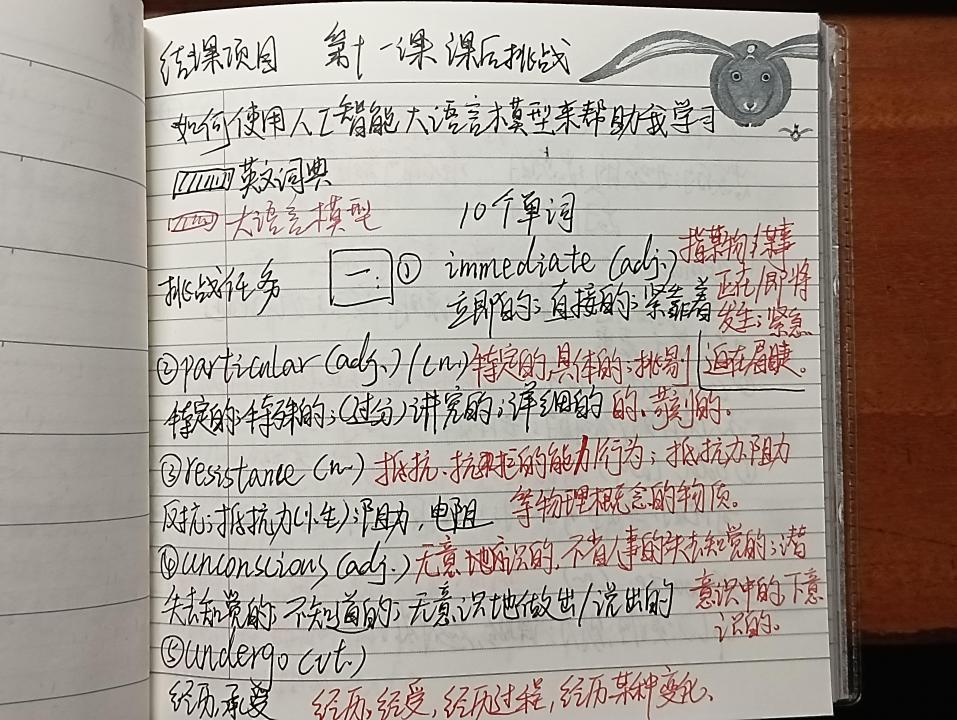 结课项目 第十一课 课后挑战
如何使用人工智能大语言模型来帮助我学习
英文词典
大语言模型 10个单词
挑战任务 一: ① immediate (adj.) 指某物/某事
立即的；直接的；紧靠着 正在/即将
发生；紧急
②particular (adj.) / (n.) 特定的,具体的；挑剔 迫在眉睫。
特定的；特殊的；(过分)讲究的；详细的 的、苛刻的。
③resistance (n.) 抵抗、抗拒的能力/行为；抵抗力.阻力
反抗；抵抗力；阻力，电阻 等物理概念的物质。
④unconscious (adj.) 无意识的,不省人事的失去知觉的；潜
失去知觉的；不知道的；无意识地做出/说出的 意识中的,下意
识的。
⑤undergo (vt.)
经历,承受 经历、经受，经历过程，经历某种变化、